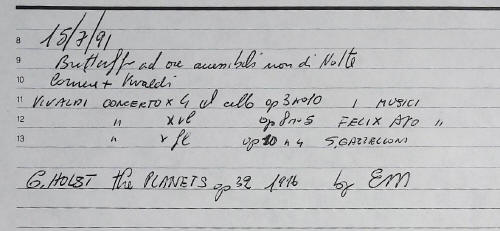 8 15/7/91
9 ad ore accessibili non di Notte
10 Vivaldi
11 VIVALDI CONCERTO x 4 vl cello op 3 n°10 I MUSICI
12 " x vl op 8 n°5 FELIX AYO "
13 " x fl op 10 n 4 S. GAZZELLONI
G. HOLST the PLANETS op 32 1916 by EM